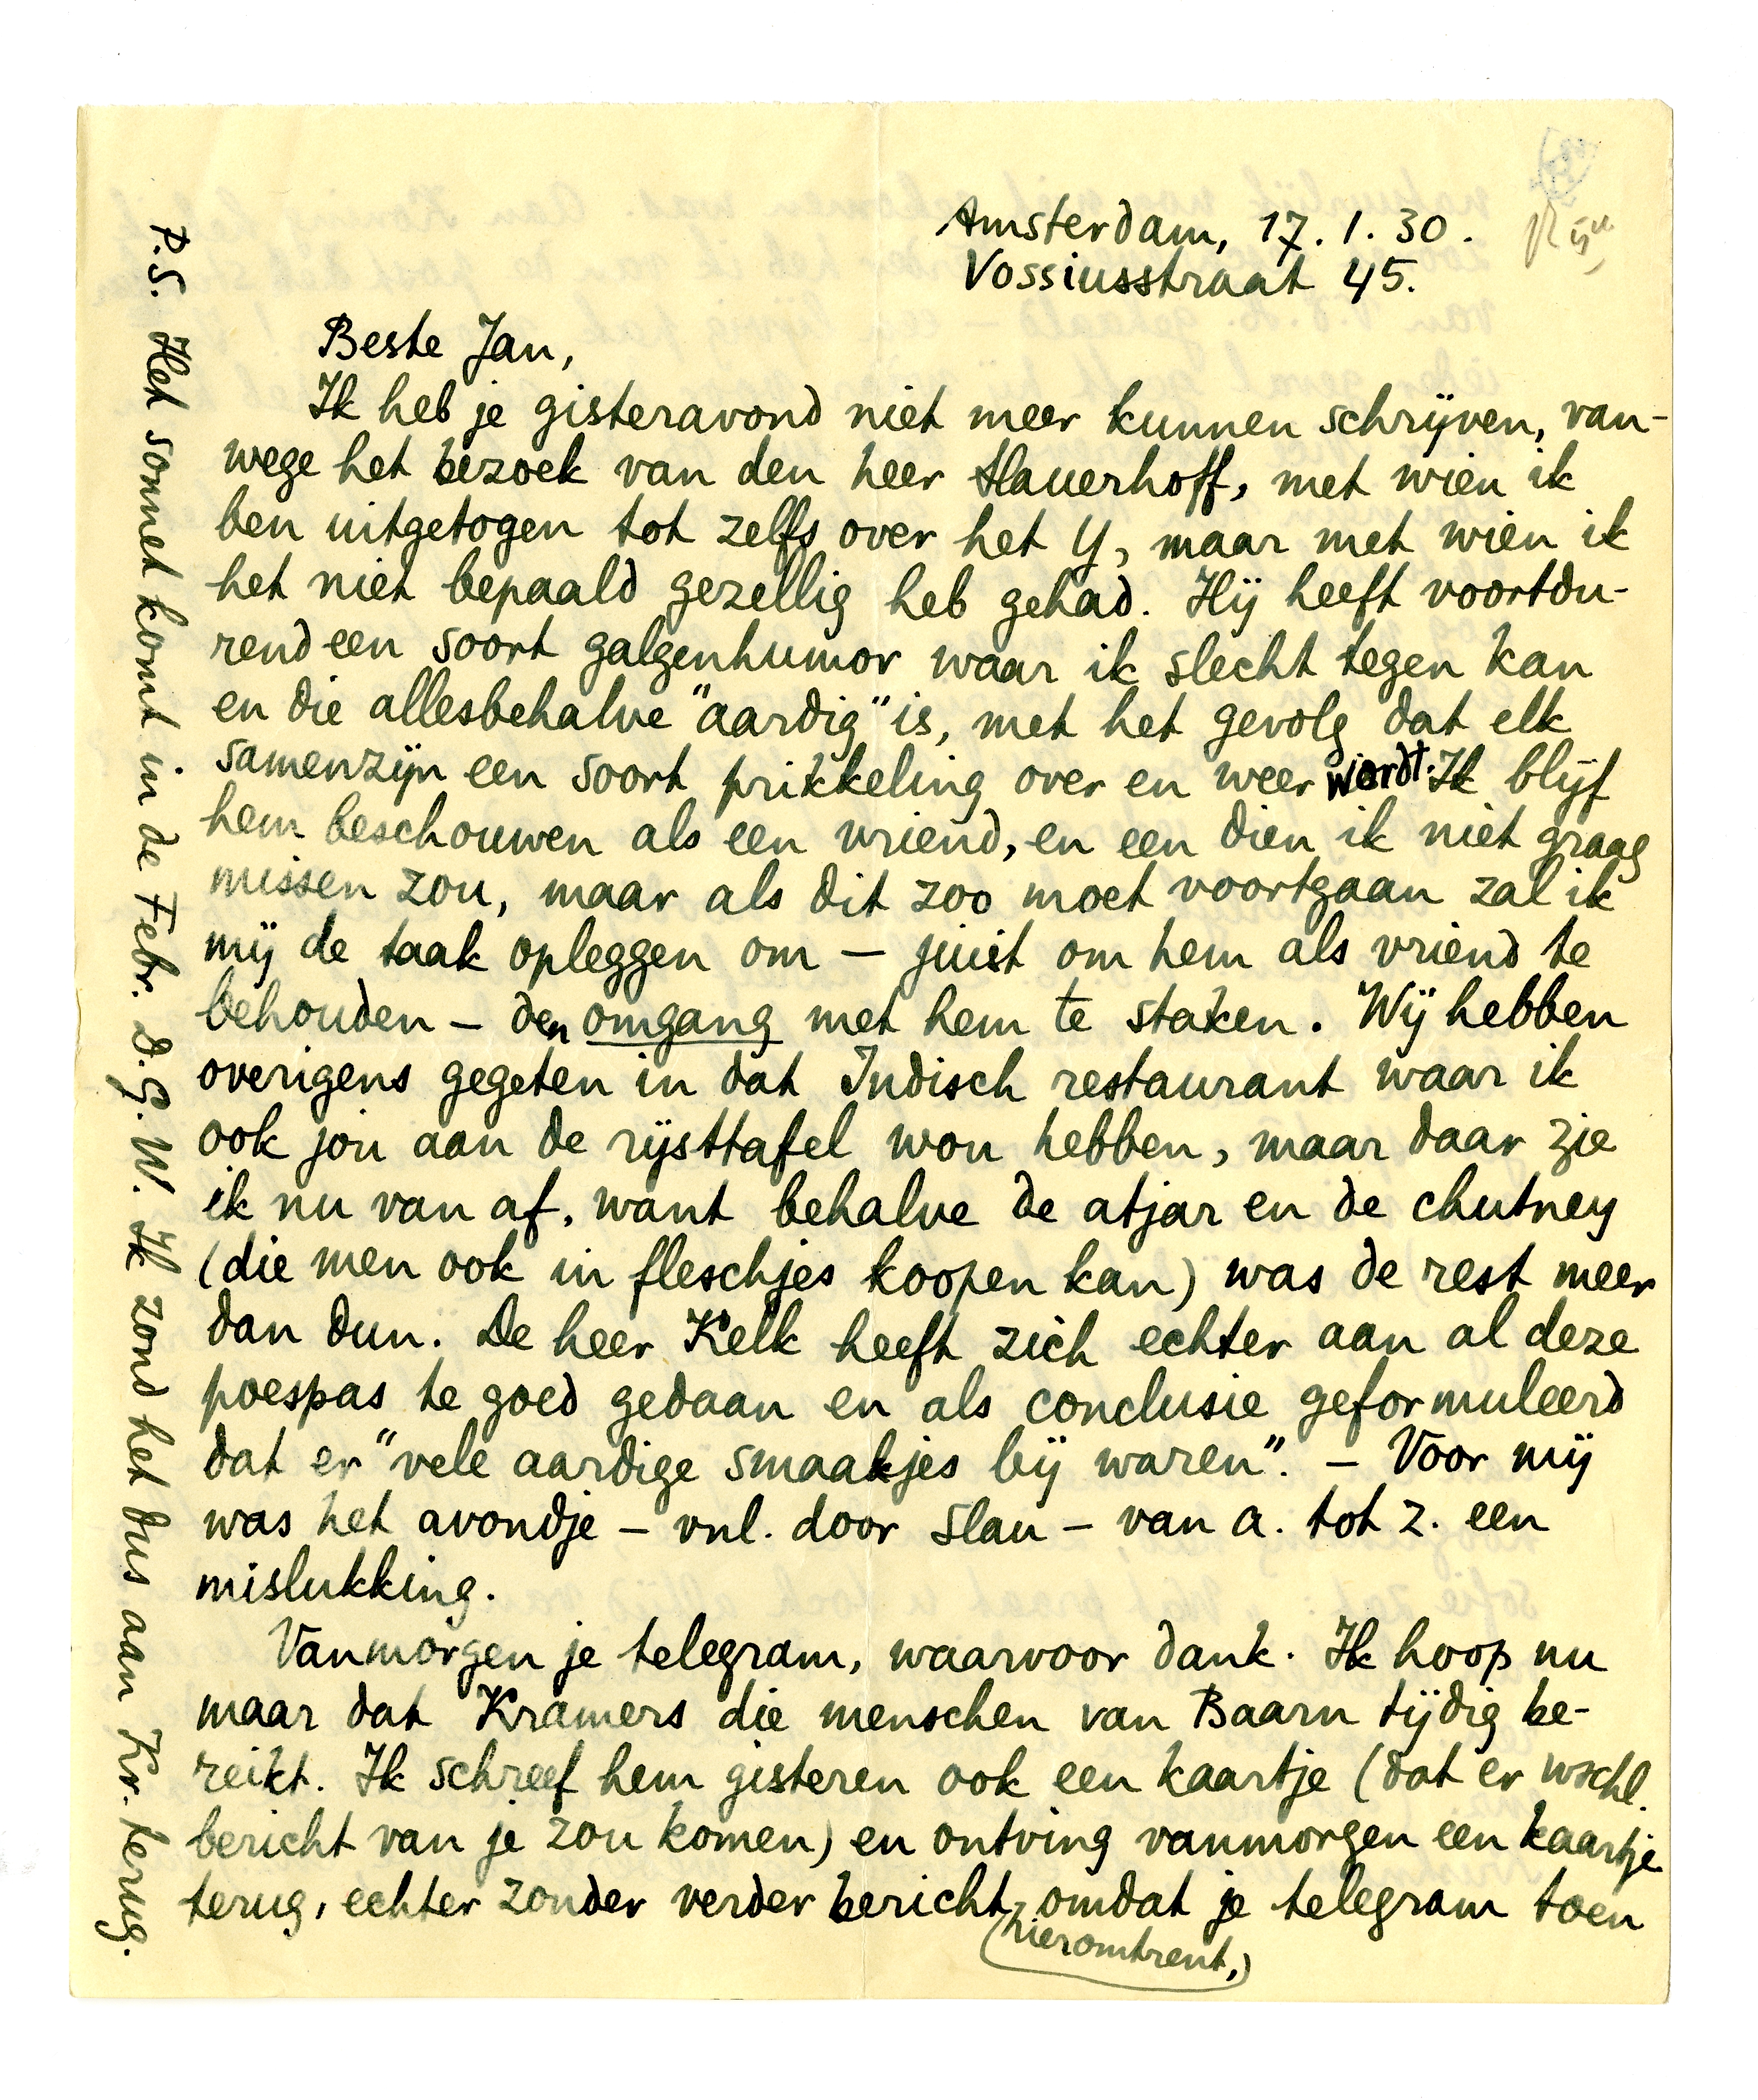 Amsterdam, 17.1.30.
Vossiusstraat 45.
Beste Jan,
Ik heb je gisteravond niet meer kunnen schrijven, van-
wege het bezoek van den heer Slauerhoff, met wien ik
ben uitgetogen tot zelfs over het Y, maar met wien ik
het niet bepaald gezellig heb gehad. Hij heeft voortdu-
rend een soort galgenhumor waar ik slecht tegen kan
en die allesbehalve "aardig" is, met het gevolg dat elk
samenzijn een soort prikkeling over en weer wordt. Ik blijf
hem beschouwen als een vriend, en een dien ik niet graag
missen zou, maar als dit zoo moet voortgaan zal ik
mij de taak opleggen om — juist om hem als vriend te
behouden — den omgang met hem te staken. Wij hebben
overigens gegeten in dat Indisch restaurant waar ik
ook jou aan de rijsttafel wou hebben, maar daar zie
ik nu van af, want behalve de atjar en de chutney
(die men ook in fleschjes koopen kan) was de rest meer
dan dun. De heer Kelk heeft zich echter aan al deze
poespas te goed gedaan en als conclusie geformuleerd
dat er "vele aardige smaakjes bij waren". — Voor mij
was het avondje — vnl. door Slau — van a. tot z. een
mislukking.
Vanmorgen je telegram, waarvoor dank. Ik hoop nu
maar dat Kramers die menschen van Baarn tijdig be-
reikt. Ik schreef hem gisteren ook een kaartje (dat er wschl.
bericht van je zou komen) en ontving vanmorgen een kaartje
terug, echter zonder verder bericht omdat je telegram toen
(hieromtrent,)
P.S. Het sonnet komt in de Febr. D.G.W. Ik zond het dus aan Kr. terug.